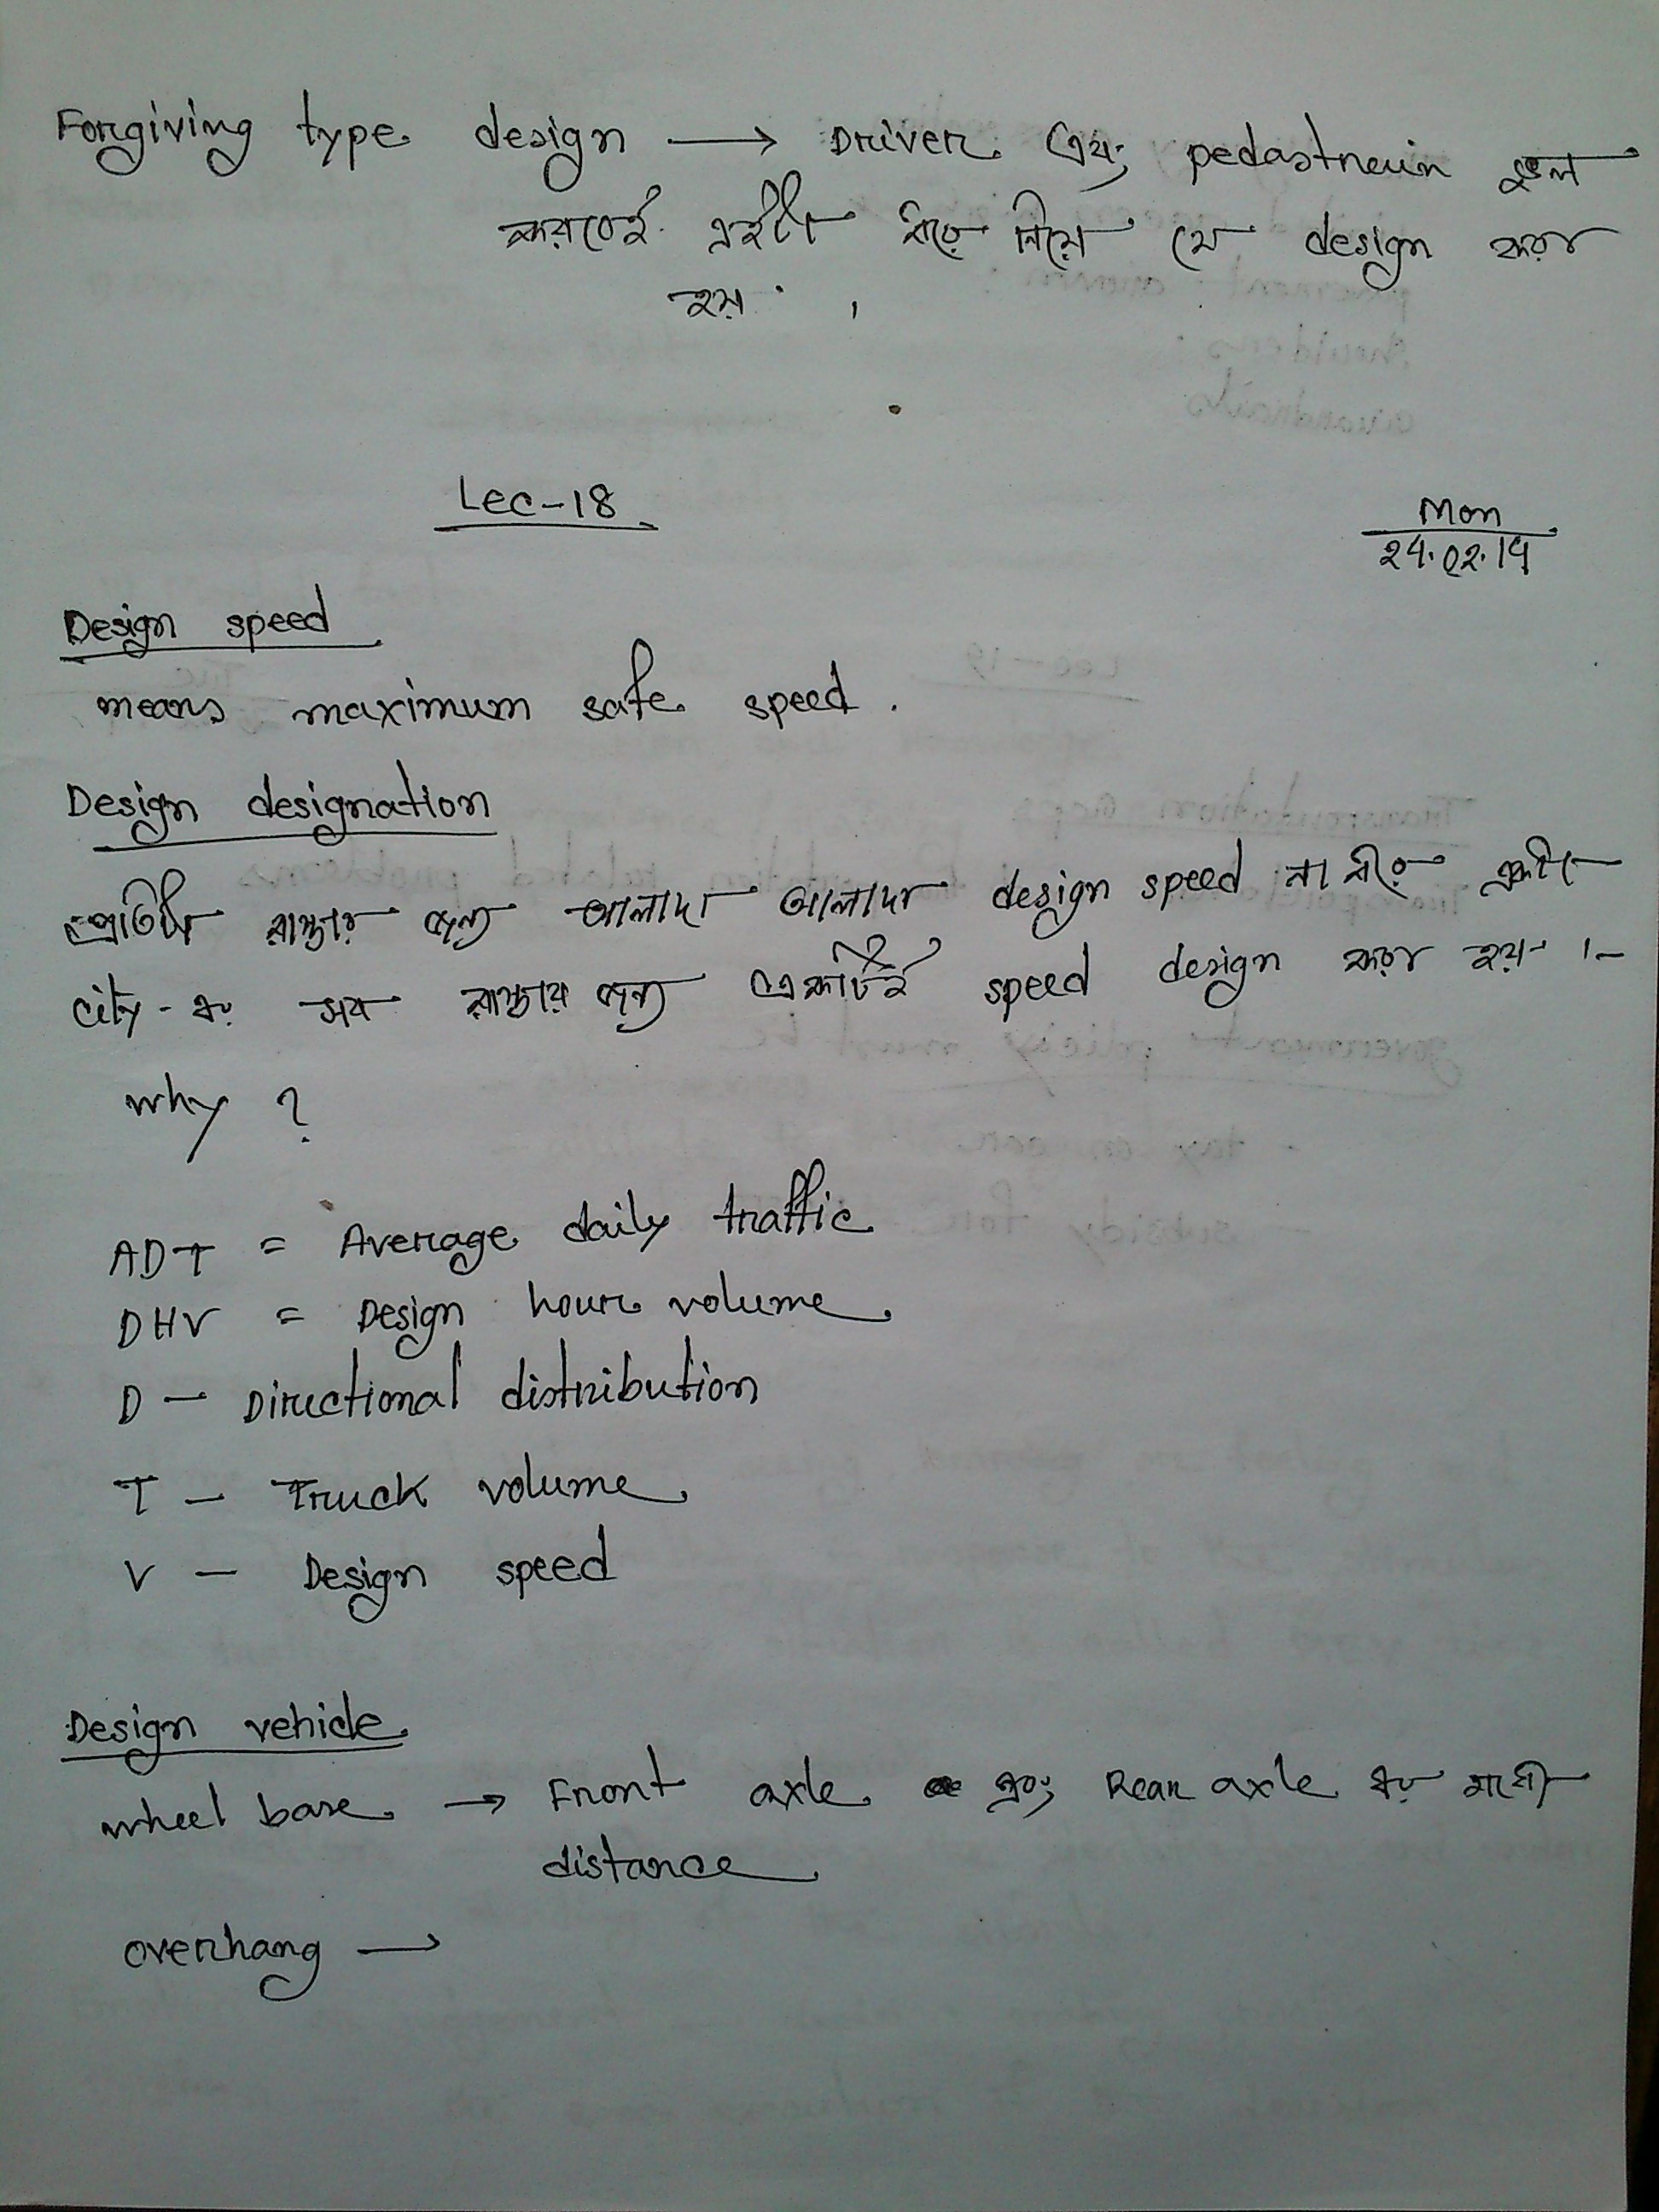 Forgiving type design → Driver এবং pedastrain ভুল
করবেই এইটা ধরে নিয়ে যে design করা
হয় ।
Lec-18
Mon
24.02.14
Design speed
means maximum safe speed.
Design designation
প্রতিটি রাস্তার জন্য আলাদা আলাদা design speed না ধরে একটা
city-র সব রাস্তার জন্য একটাই speed design করা হয় ।-
why ?
ADT = Average daily traffic
DHV = Design hour volume
D — Directional distribution
T — Truck volume
V — Design speed
Design vehicle
wheel base → Front axle এবং Rear axle এর মাঝে
distance
overhang →